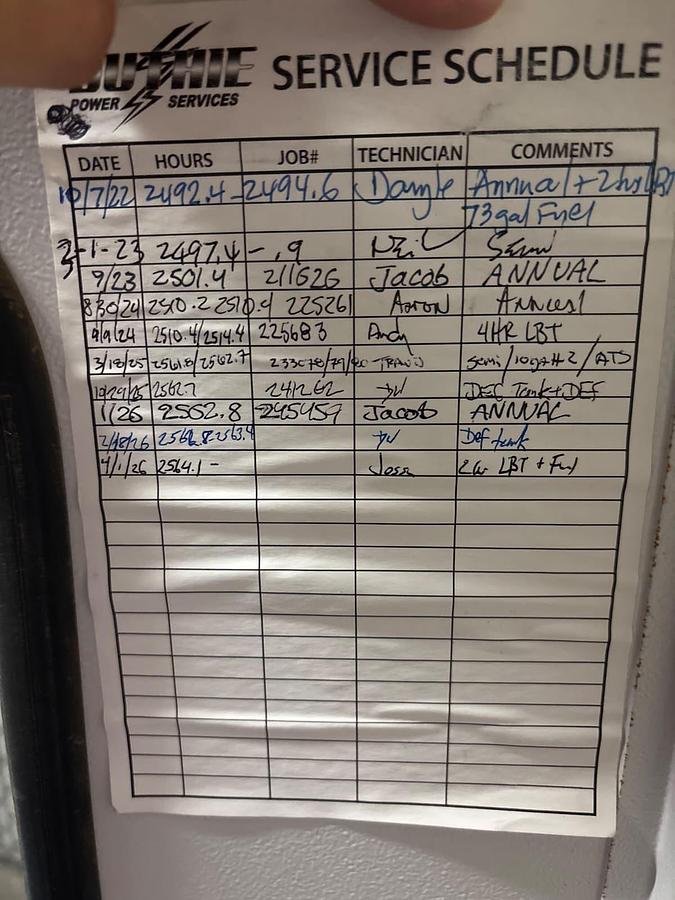 DUTHIE SERVICE SCHEDULE
POWER SERVICES
DATE HOURS JOB# TECHNICIAN COMMENTS
10/7/22 2492.4-2494.6 Annual + 2hr LBT
73gal Fuel
2-1-23 2497.4 - .9 Neil Semi
9/23 2501.4 211626 Jacob ANNUAL
8/30/24 2510.2 2510.4 225261 Aaron Annual
9/9/24 2510.4/2514.4 225683 Andy 4HR LBT
3/18/25 2561.8/2562.7 Travis Semi/ /ATS
10/29/25 2562.7 241262 DEF Tank + DEF
1/26 2562.8 245457 Jacob ANNUAL
2/18/26 Def tank
4/1/26 2564.1 - Jesse LBT + Fuel